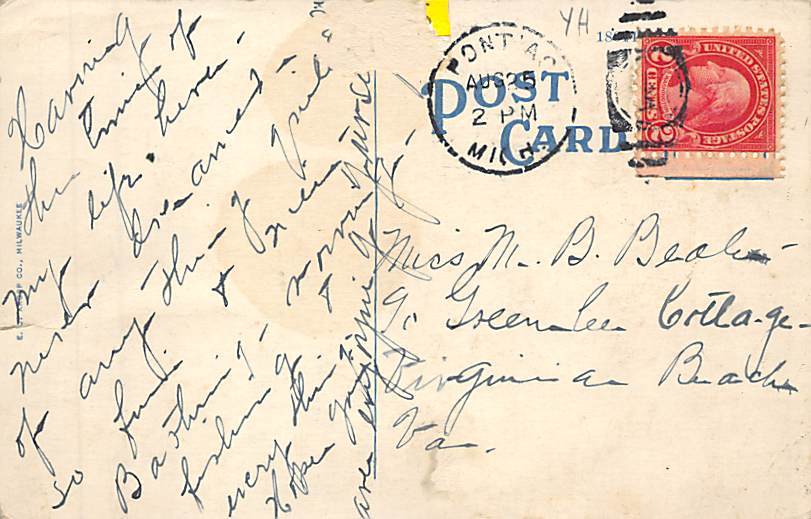 Having
the time of
my life, here.
never dreamed
of any thing quite
so fine. & nice
Bathing,
fishing &
every thing
Hope you
are enjoying
PONTIAC
AUG 25
2 PM
MICH
POST
CARD
YH
18
UNITED STATES POSTAGE
2 CENTS 2
Miss M. B. Beale
℅ Greenlee Cottage
Virginia Beach
Va.
CO., MILWAUKEE